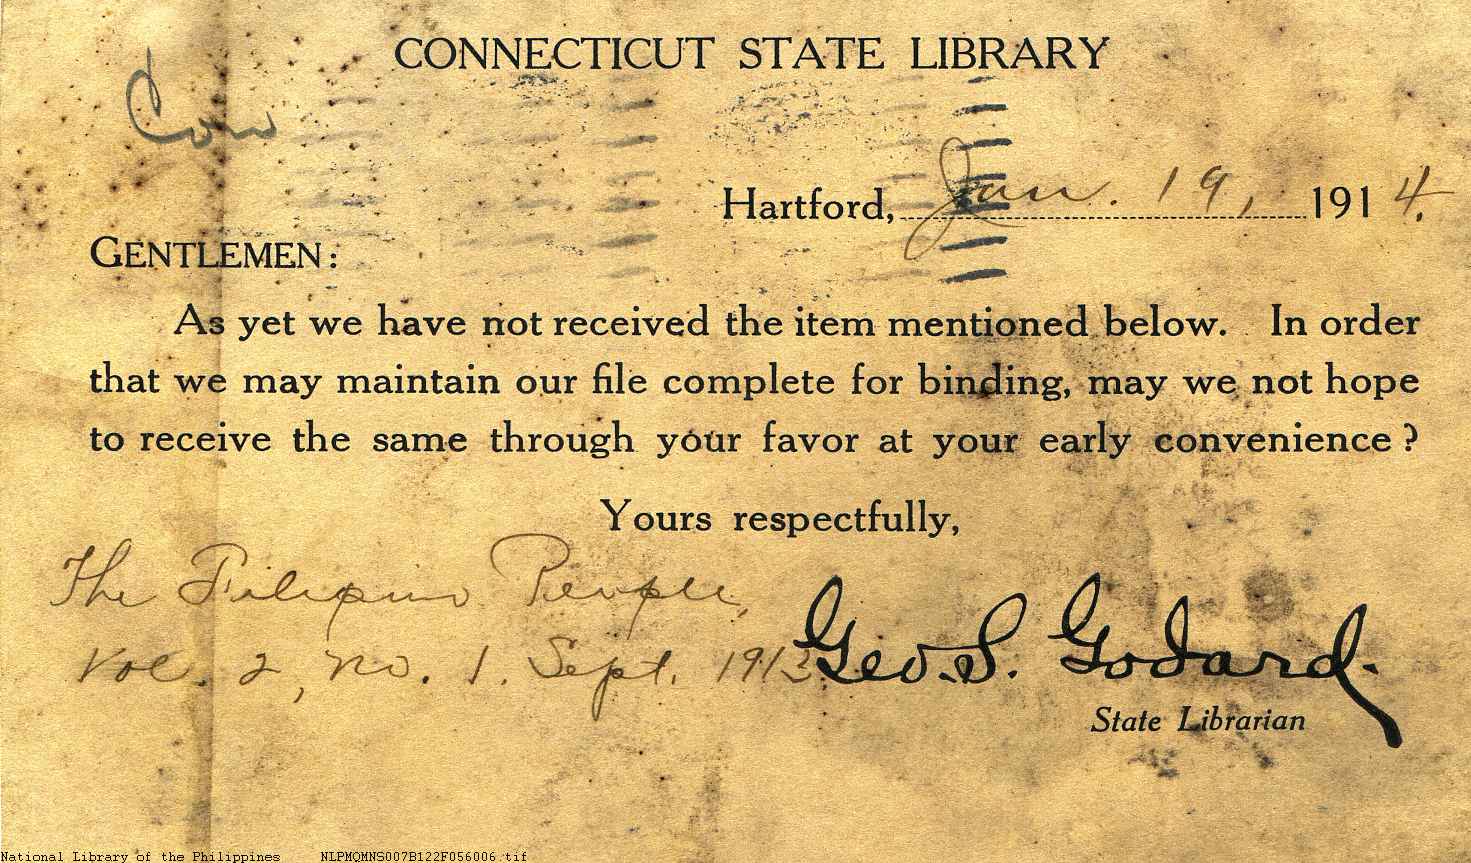 CONNECTICUT STATE LIBRARY
Hartford, Jan. 19, 1914.
GENTLEMEN:
As yet we have not received the item mentioned below. In order
that we may maintain our file complete for binding, may we not hope
to receive the same through your favor at your early convenience?
Yours respectfully,
The Filipino People,
Vol. 2, no. 1. Sept. 1913.
Geo. S. Godard.
State Librarian
National Library of the Philippines NLPMQMNS007B122F056006.tif